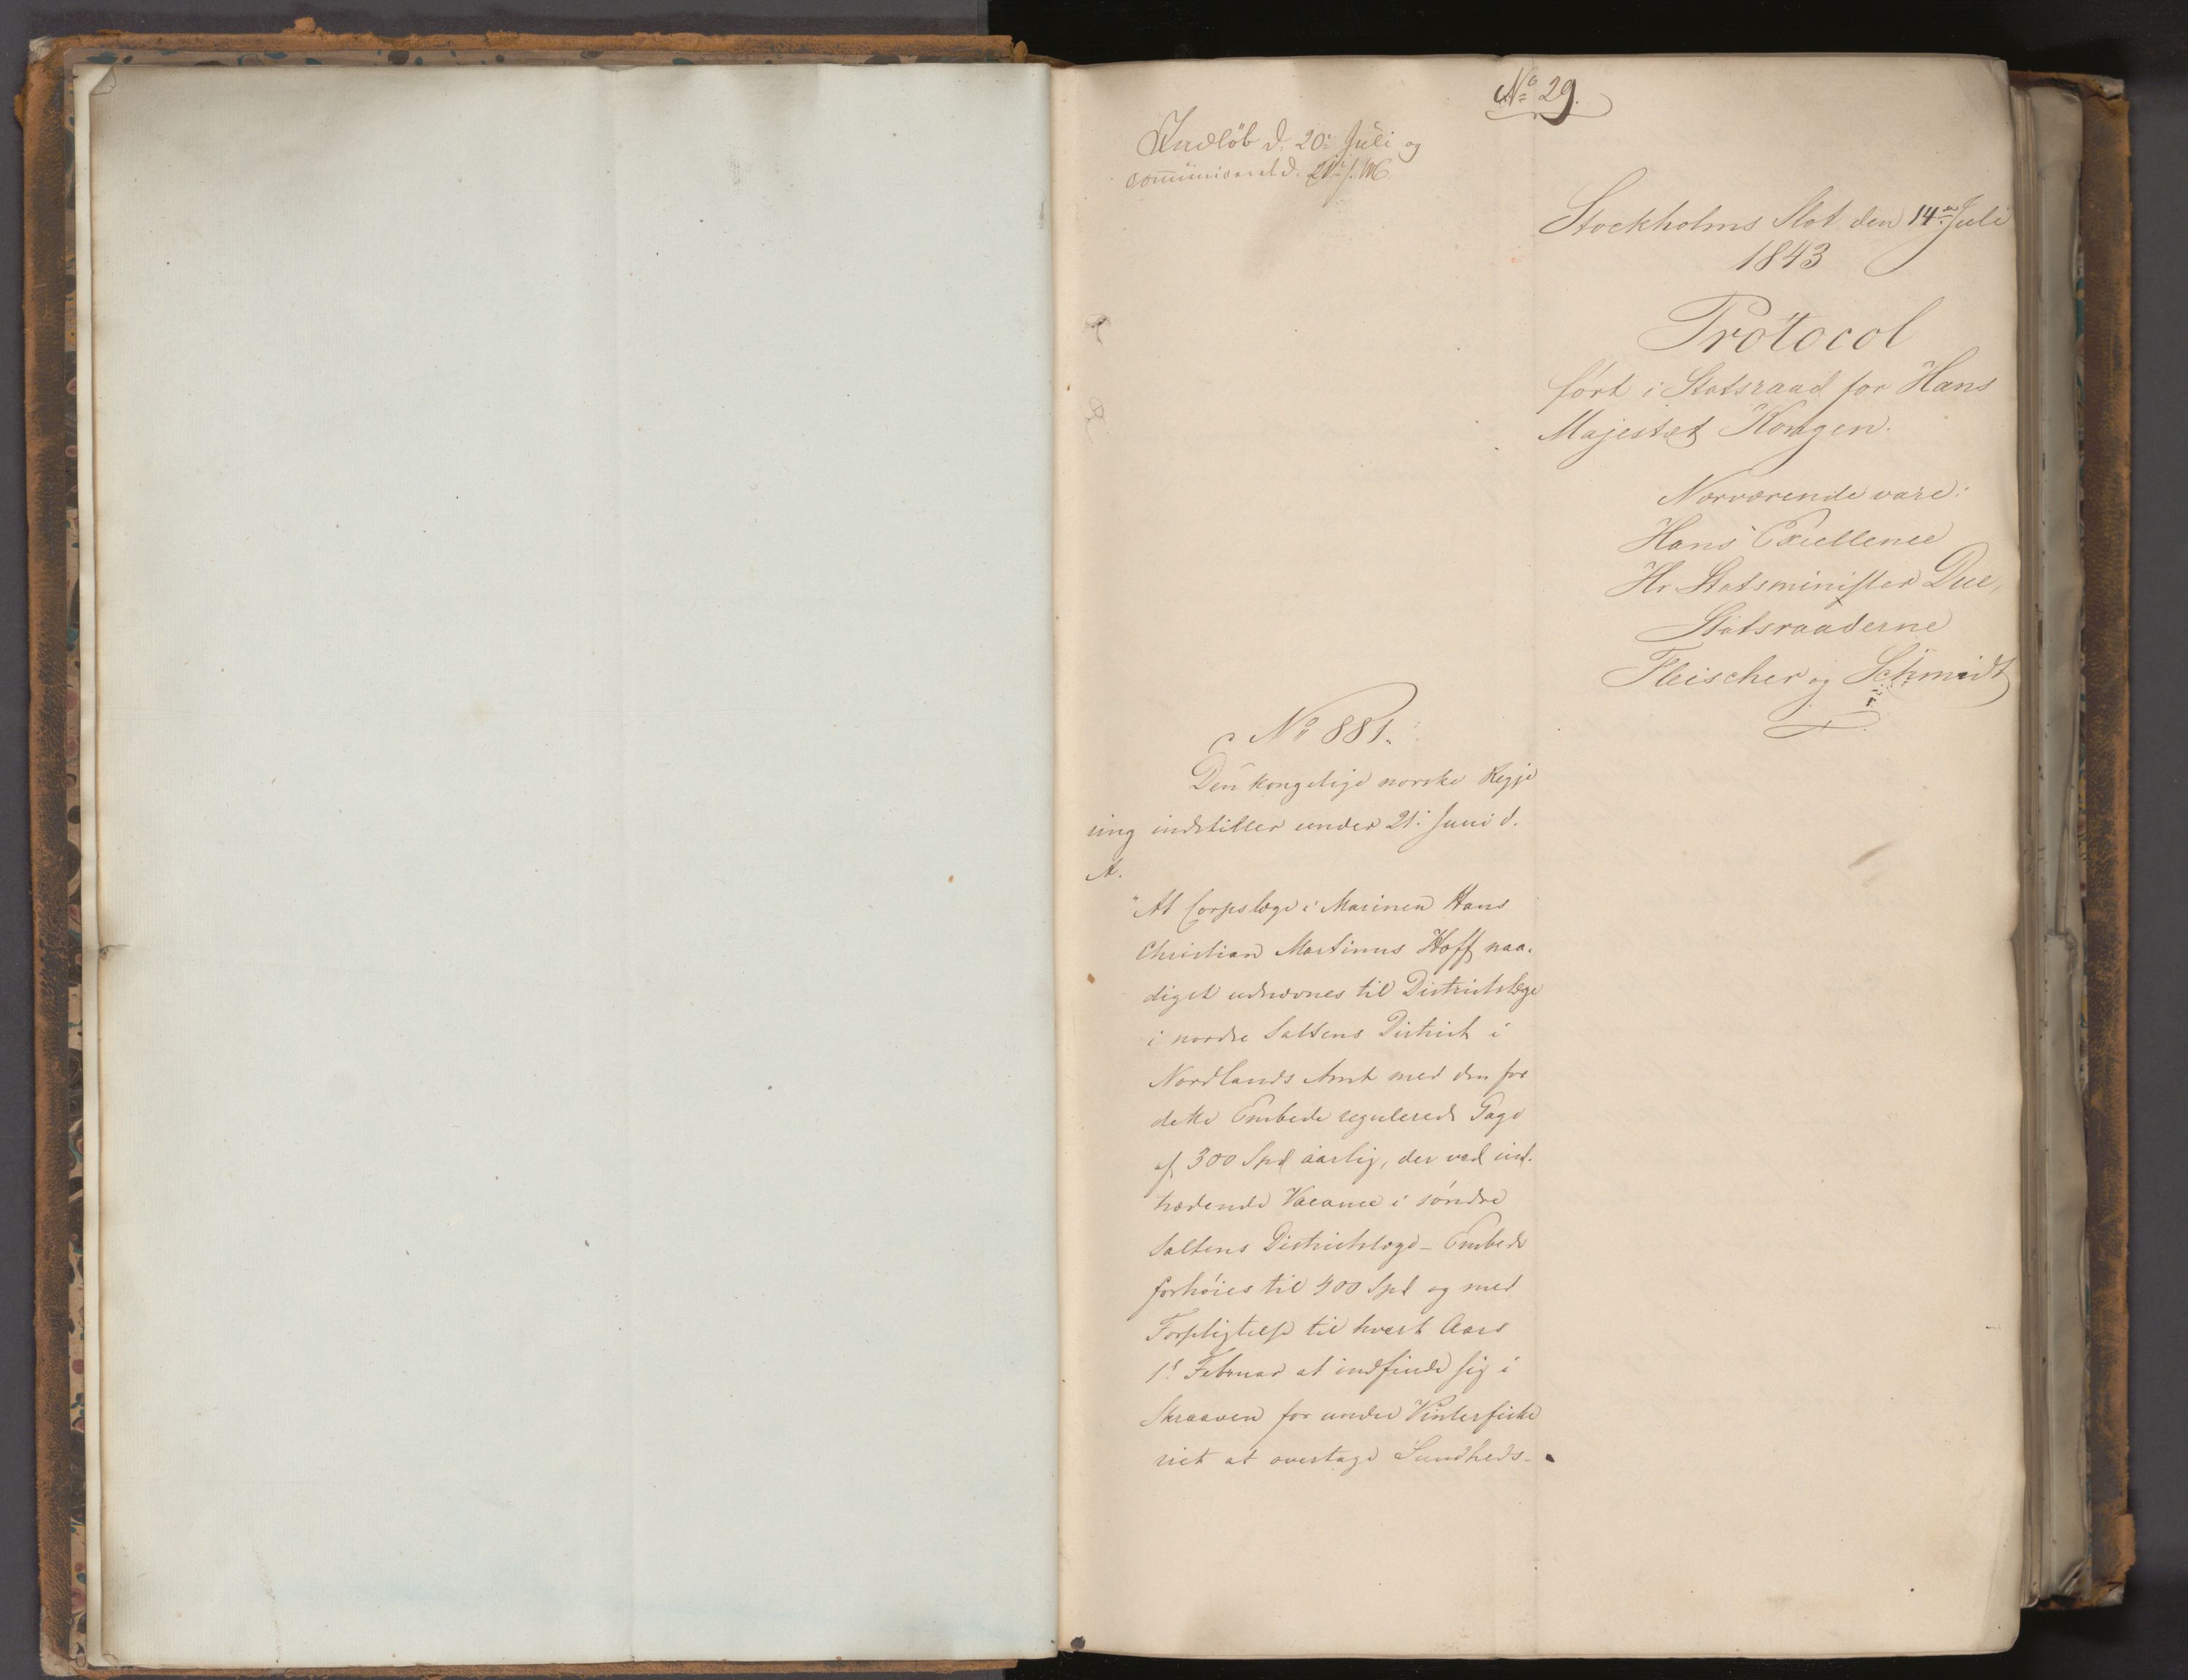 No 29.
Indløb d. 20de Juli og
communiceret d. 21de s. M.
Stockholms Slot den 14de Juli
1843
Protocol
ført i Statsraad for Hans
Majestæt Kongen.
Nærværende vare:
Hans Excellence
Hr. Statsminister Due,
Statsraaderne
Fleischer og Schmidt
No 881.
Den kongelige norske Regje
ring indstiller under 21. Juni d.
A.
"At Corpslæge i Marinen Hans
Christian Martinus Hoff naa-
digst udnævnes til Districtslæge
i nordre Saltens District i
Nordlands Amt med den for
dette Embede regulerede Gage
af 300 Spd aarlig, der ved ind-
trædende Vacance i søndre
Saltens Districtslæge-Embede
forhøies til 400 Spd og med
Forpligtelse til hvert Aars
1. Februar at indfinde sig i
Skraaven for under Vinterfiske
riet at overtage Sundheds-